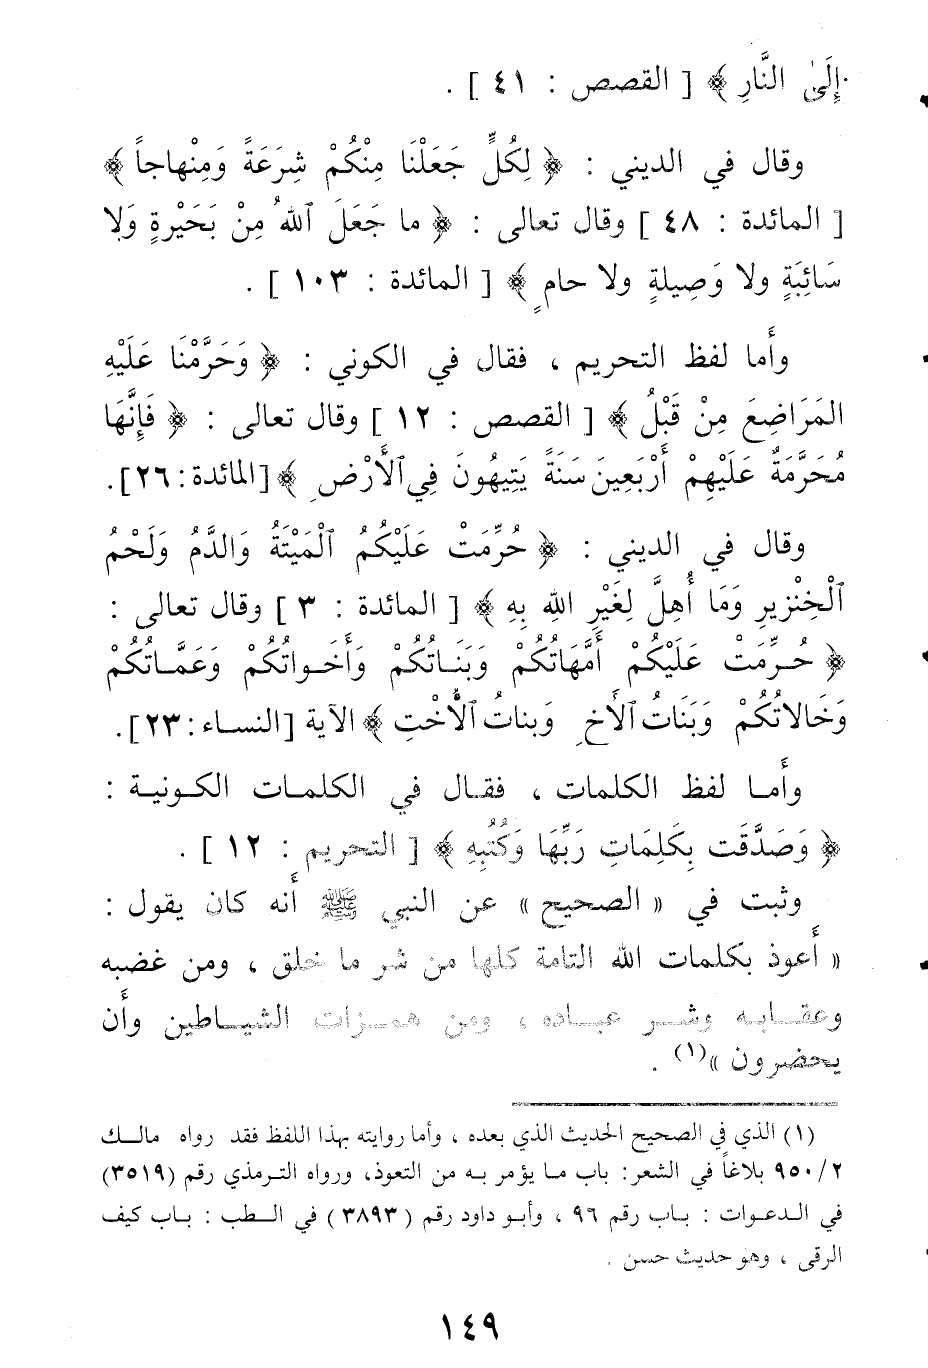 إِلَىٰ النَّارِ ﴾ [ القصص : ٤١ ] .
وقال في الديني : ﴿ لِكُلٍّ جَعَلْنَا مِنْكُمْ شِرَعَةً وَمِنْهاجاً ﴾
[ المائدة : ٤٨ ] وقال تعالى : ﴿ ما جَعَلَ ٱللهُ مِنْ بَحَيْرةٍ وَلا
سَائِبَةٍ ولا وَصِيلةٍ ولا حامٍ ﴾ [ المائدة : ١٠٣ ] .
وأَما لفظ التحريم ، فقال في الكوني : ﴿ وَحَرَّمْنَا عَلَيْهِ
المَرَاضِعَ مِنْ قَبْلُ ﴾ [ القصص : ١٢ ] وقال تعالى : ﴿ فَإِنَّهَا
مُحَرَّمَةٌ عَلَيْهِمْ أَرْبَعِينَ سَنَةً يَتِيهُونَ فِي ٱلأَرْضِ ﴾ [المائدة : ٢٦] .
وقال في الديني : ﴿ حُرِّمَتْ عَلَيْكُمُ ٱلْمَيْتَةُ وَالدَّمُ وَلَحْمُ
ٱلْخِنْزِيرِ وَمَا أُهِلَّ لِغَيْرِ اللهِ بِهِ ﴾ [ المائدة : ٣ ] وقال تعالى :
﴿ حُرِّمَتْ عَلَيْكُمْ أُمَّهَاتُكُمْ وَبَنَاتُكُمْ وَأَخَواتُكُمْ وَعَمَّاتُكُمْ
وَخَالاتُكُمْ وَبَنَاتُ ٱلأَخِ وَبناتُ ٱلأُخْتِ ﴾ الآية [النساء : ٢٣] .
وأَما لفظ الكلمات ، فقال في الكلمات الكونية :
﴿ وَصَدَّقَت بِكَلِمَاتِ رَبِّهَا وَكُتُبِهِ ﴾ [ التحريم : ١٢ ] .
وثبت في « الصحيح » عن النبي ﷺ أَنه كان يقول :
« أَعوذ بكلمات الله التامة كلها من شر ما خلق ، ومن غضبه
وعقابه وشر عباده ، ومن همزات الشياطين وأَن
يحضرون »(١) .
(١) الذي في الصحيح الحديث الذي بعده ، وأما روايته بهذا اللفظ فقد رواه مالك
٢/ ٩٥٠ بلاغاً في الشعر : باب ما يؤمر به من التعوذ، ورواه الترمذي رقم (٣٥١٩)
في الدعوات : باب رقم ٩٦ ، وأبو داود رقم ( ٣٨٩٣ ) في الطب : باب كيف
الرقى ، وهو حديث حسن .
١٤٩